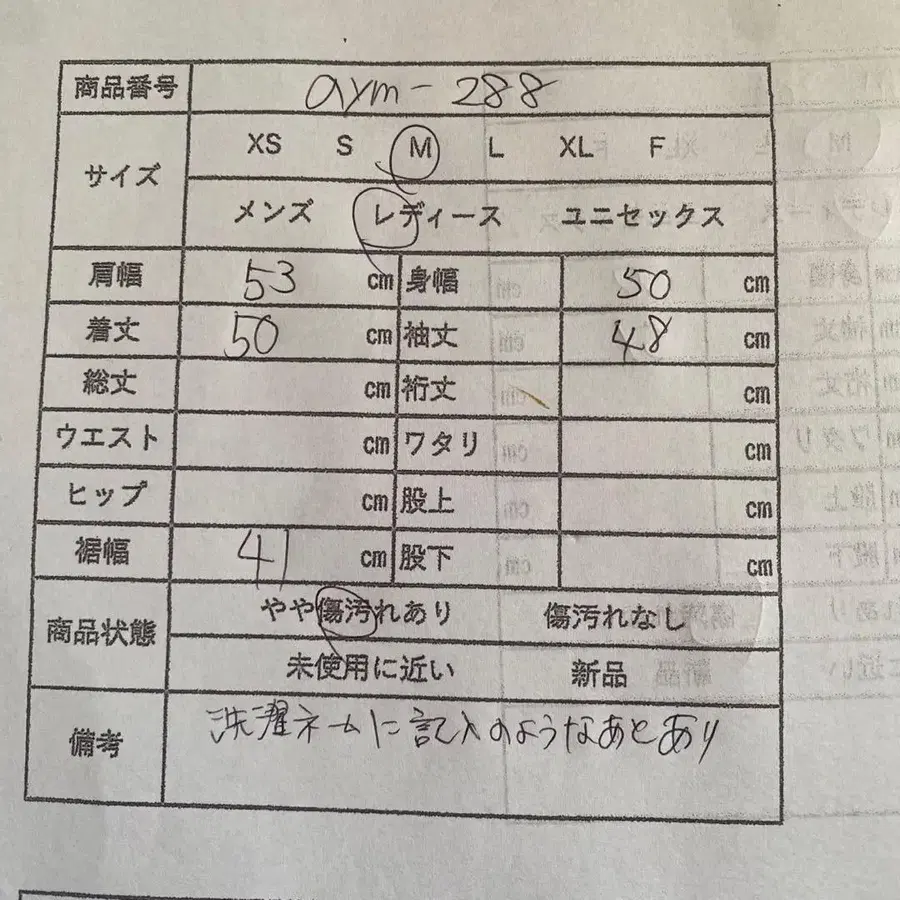 商品番号 aym-288
サイズ XS S M L XL F
メンズ レディース ユニセックス
肩幅 53 cm 身幅 50 cm
着丈 50 cm 袖丈 48 cm
総丈 cm 裄丈 cm
ウエスト cm ワタリ cm
ヒップ cm 股上 cm
裾幅 41 cm 股下 cm
商品状態 やや傷汚れあり 傷汚れなし
未使用に近い 新品
備考 洗濯ネームに記入のようなあとあり